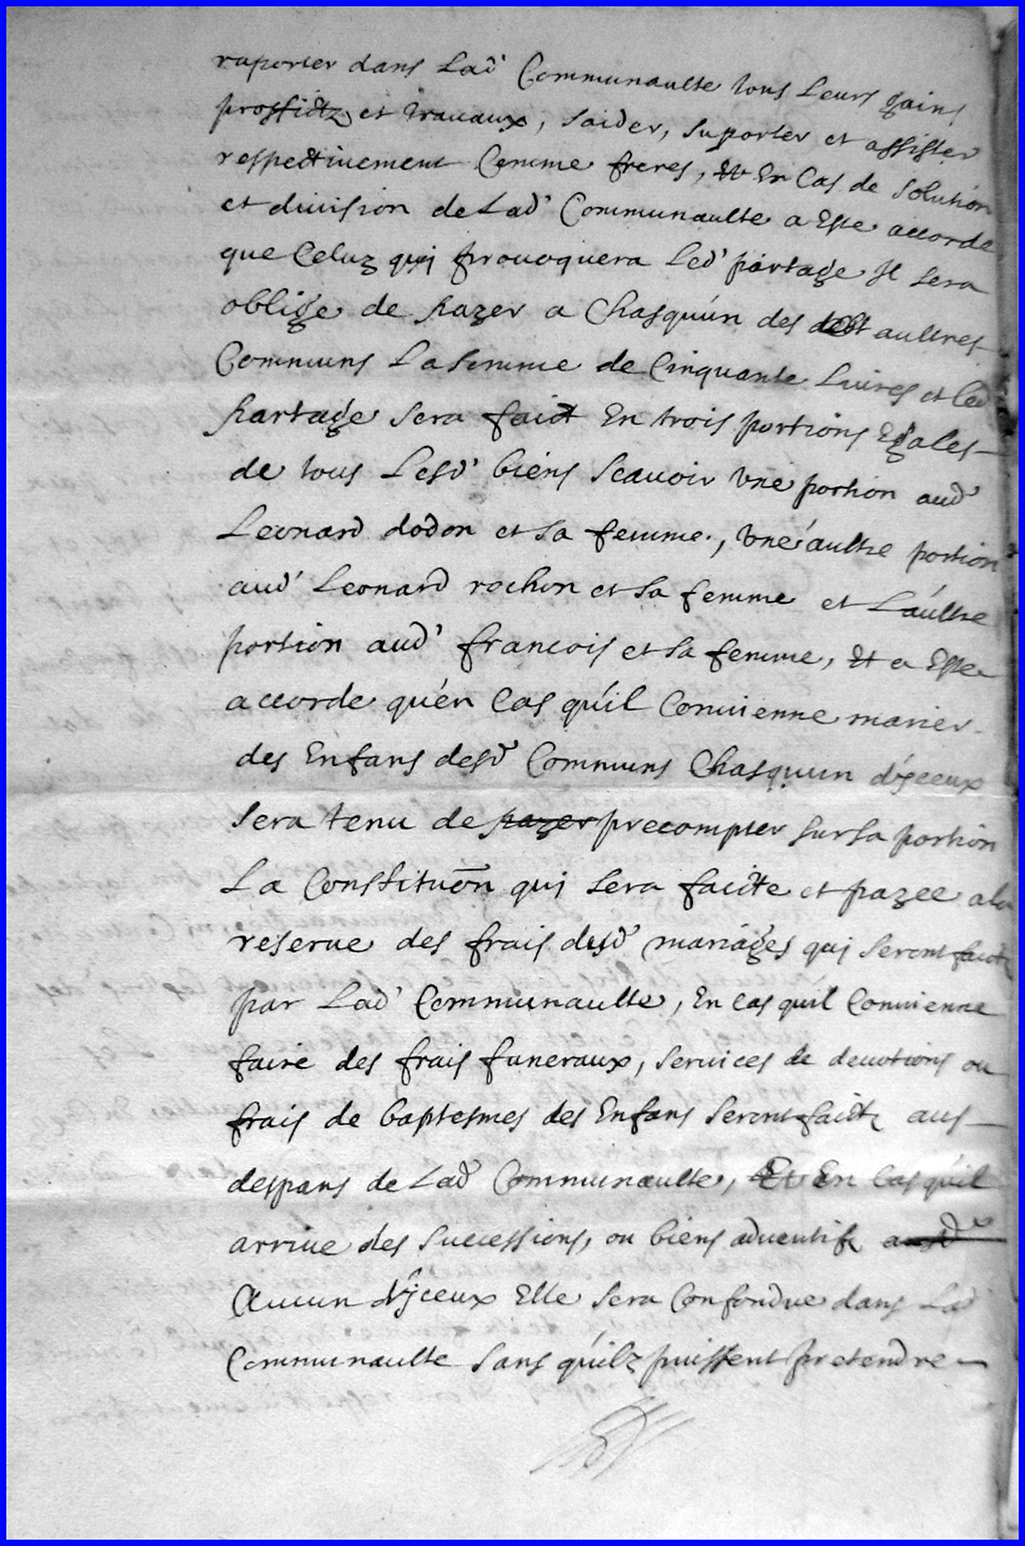 raporter dans Lad' Communaulte tous Leurs gains
proffictz et travaux, saider, suporter et assister
respectivement Comme freres, Et En Cas de solution
et division de Lad' Communaulte a Este accorde
que Celuy quj provoquera Led' partage Il sera
oblige de payer a Chasquun des aultres
Communs La somme de Cinquante Livres et Led
Partage sera faict En trois portions Egales
de tous Lesd' biens scavoir Une portion aud'
Leonard dodon et sa femme, Une aultre portion
aud' Leonard rochon et sa femme et Laultre
portion aud' francois et sa femme, Et a Este
accorde qu'en Cas qu'il Convienne marier
des Enfans desd' Communs Chasquun d'yceux
sera tenu de payer precompter sur sa portion
La Constituõn quj sera faicte et payee a la
reserve des frais desd' mariages quj seront faictz
par Lad' Communaulte, En cas qu'il Convienne
faire des frais funeraux, services de devotions ou
frais de baptesmes des Enfans seront faictz aus
despans de Lad' Communaulte, Et En Cas qu'il
arrive des successions, ou biens adventifz
Aucun d'yceux Elle sera Confondue dans Lad'
Communaulte sans qu'ilz puissent pretendre